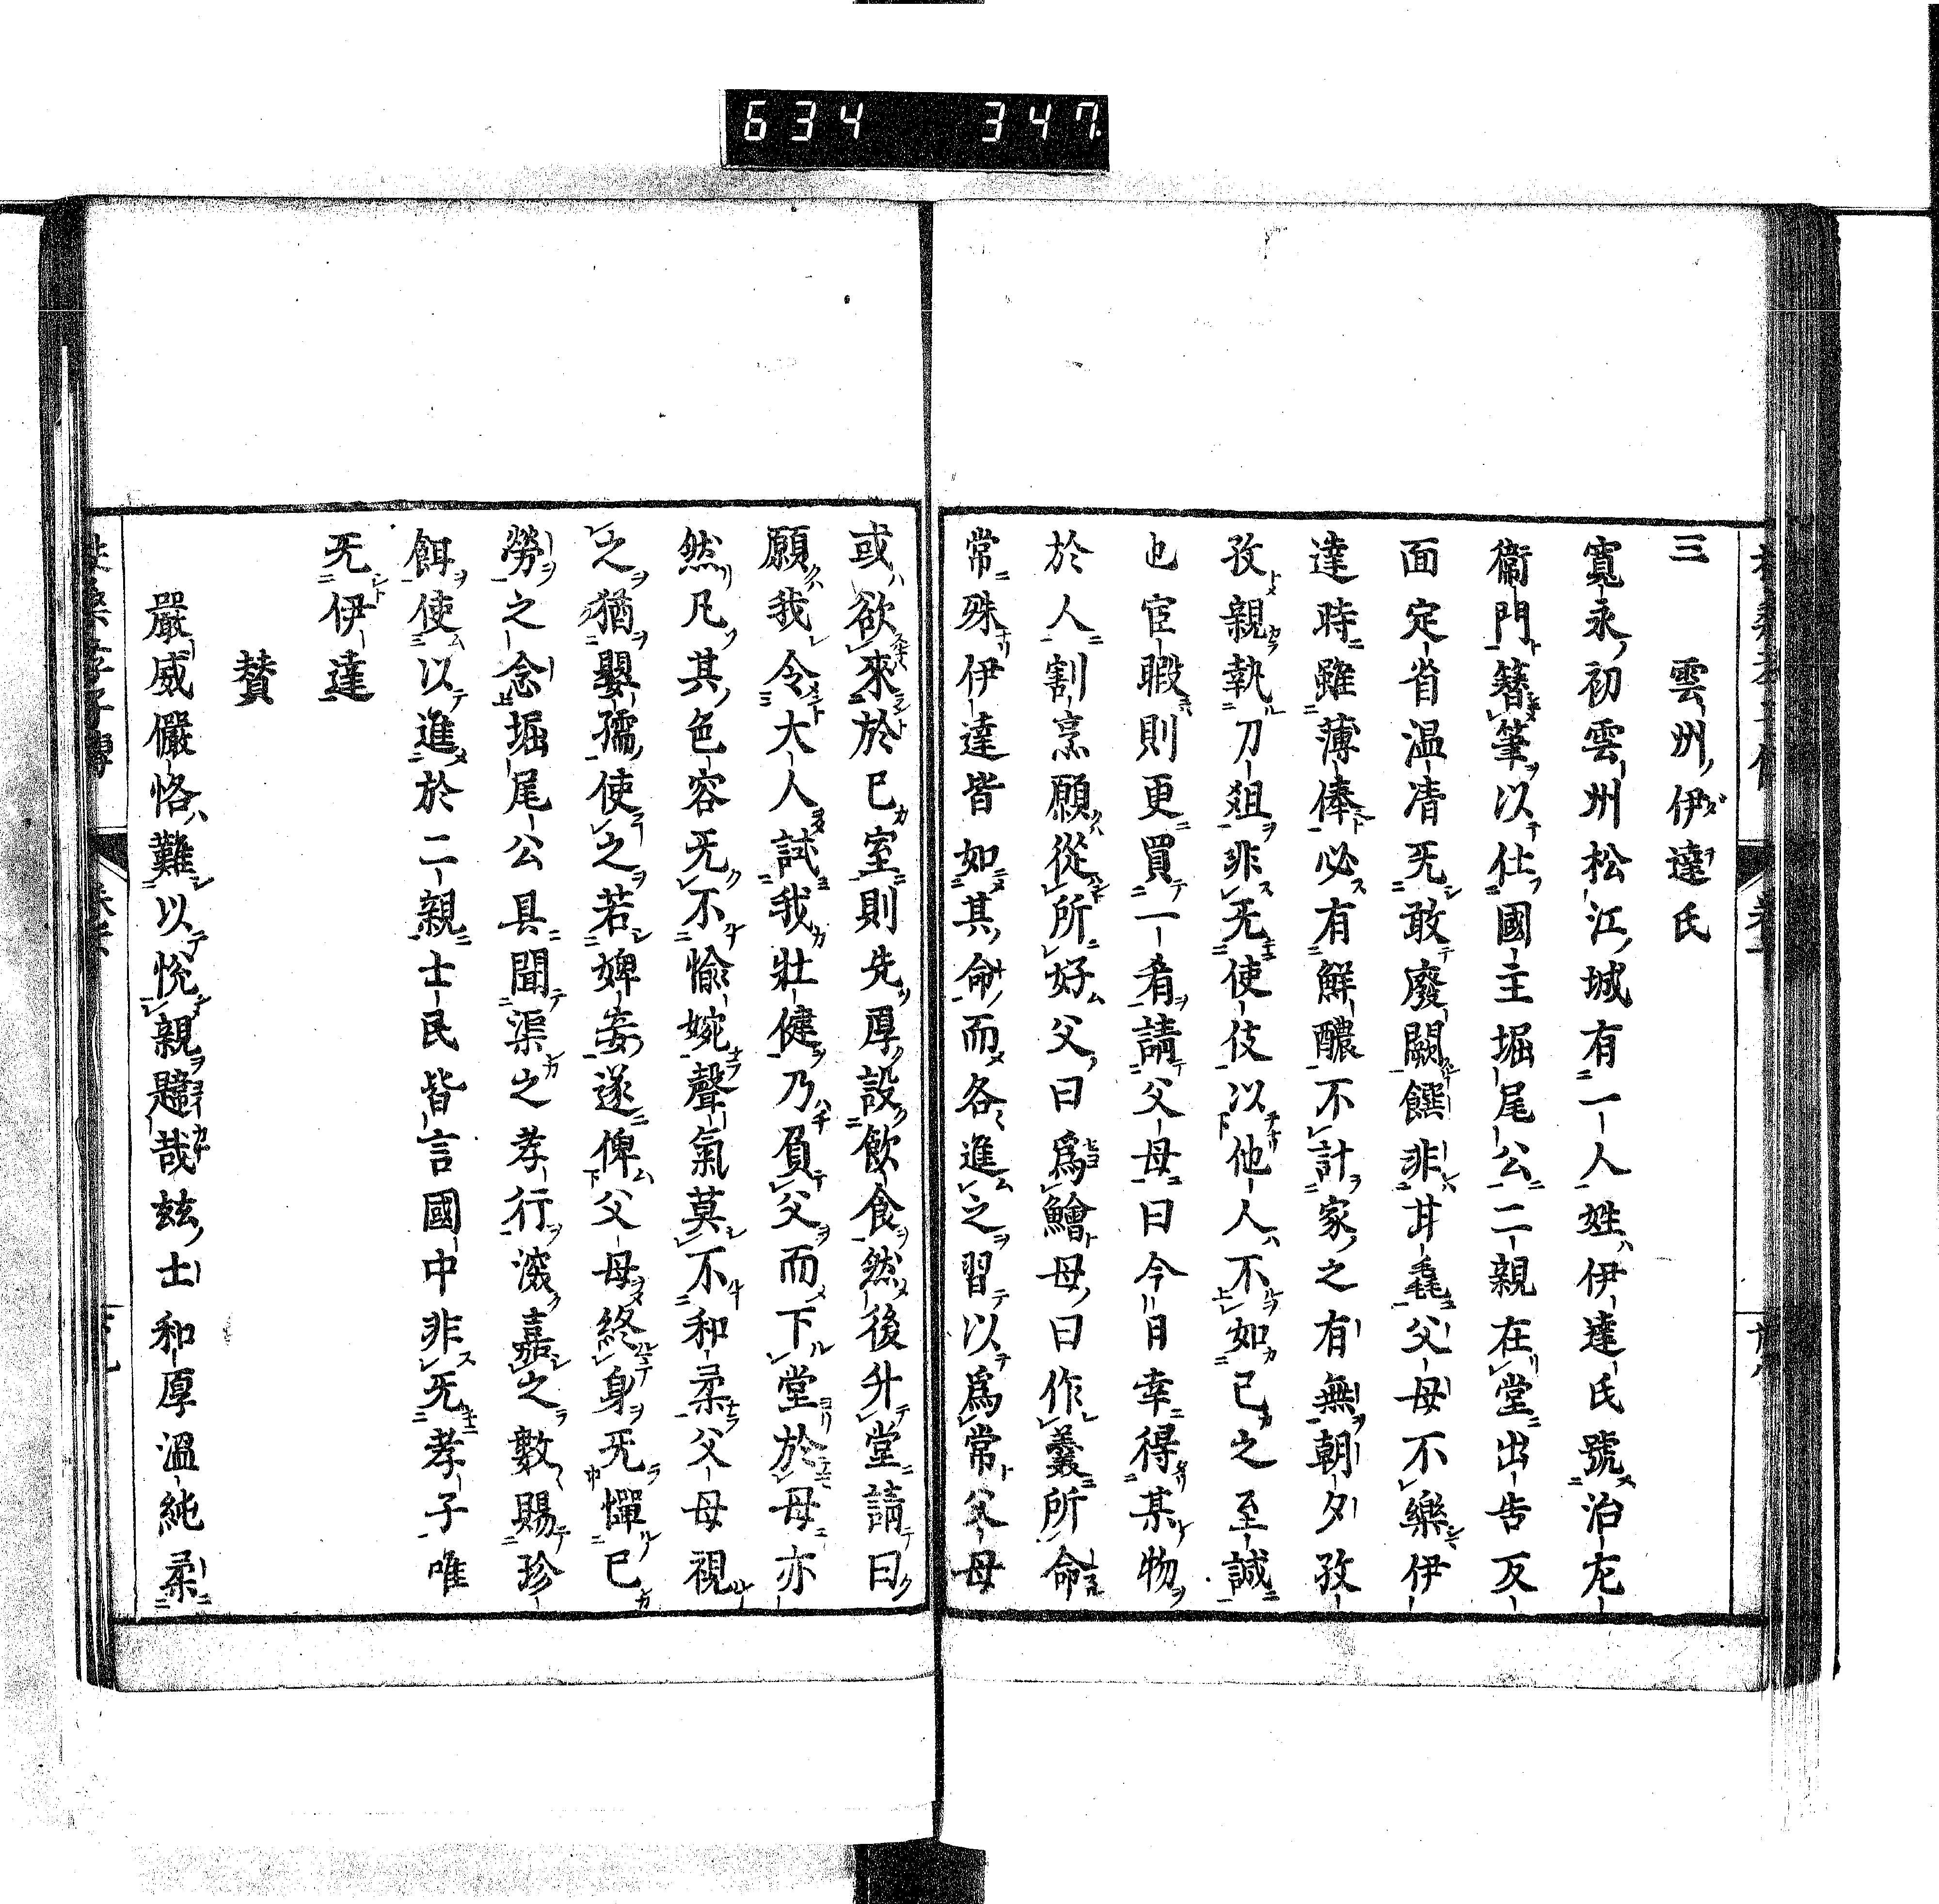 634 347
三 雲州伊達氏
寬永初雲州松江城有一人姓伊達氏號治左
衞門簪筆以仕國主堀尾公二親在堂出告反
面定省温凊旡敢廢闕饌非甘毳父母不樂伊
達時雖薄俸必有鮮醲不計家之有無朝夕孜
孜親執刀俎非旡使伎以他人不如己之至誠
也宦暇則更買一肴請父母曰今日幸得某物
於人割烹願從所好父曰爲鱠母曰作羹所命
常殊伊達皆如其命而各進之習以爲常父母
或欲來於己室則先厚設飲食然後升堂請曰
願我令大人試我壯健乃負父而下堂於母亦
然凡其色容旡不愉婉聲氣莫不和柔父母視
之猶嬰孺使之若婢妾遂俾父母終身旡憚己
勞之念堀尾公具聞渠之孝行深嘉之數賜珍
餌使以進於二親士民皆言國中非旡孝子唯
旡伊達
賛
嚴威儼恪難以悅親韙哉玆士和厚溫純柔